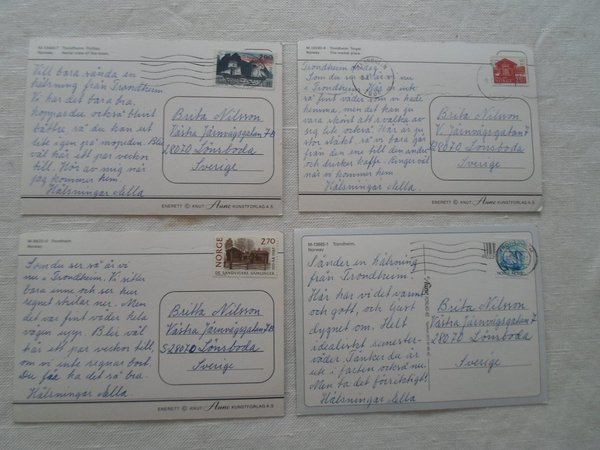 Trondheim.
Norway
Vill bara sända en
hälsning från Trondheim
Vi har det bara bra.
hoppas du också blivit
bättre, så du kan ut
lite igen på mopeden. Blir
väl här ett par veckor
till. Hör av mig när
jag kommer hem.
Hälsningar Sella
Brita Nilsson
Västra Järnvägsgatan 7B
28070 Lönsboda
Sverige
ENERETT © KNUT Aune KUNSTFORLAG A.S
Trondheim. Torget.
Norway. The market place.
Trondheim
Som du ser så är vi nu
i Trondheim. Har
fint väder som vi hade
hemma, men det kan ju
vara skönt att svalka av
sig lite också. Har
från den ene till den andre
och dricker kaffe. Ringer väl
när vi kommer hem
Hälsningar Sella
Brita Nilsson
V. Järnvägsgatan 7
28070 Lönsboda
Sverige
ENERETT © KNUT Aune KUNSTFORLAG A.S
Trondheim.
Norway
Som du ser så är vi
nu i Trondheim. Vi sitter
bara inne och ser hur
regnet strilar ner. Men
det var fint väder hela
vägen upp. Blir väl
här ett par veckor till, om
om vi inte regnar bort.
Du får ha det så bra.
Hälsningar Sella
NORGE 2.70
DE SANDVIGSKE SAMLINGER
Britta Nilsson
Västra Järnvägsgatan 7B
S28070 Lönsboda
Sverige
ENERETT © KNUT Aune KUNSTFORLAG A.S
Trondheim.
Norway
Sänder en hälsning
från Trondheim.
Här har vi det varmt
och gott, och gjort
dygnet om. Helt
idealiskt semester-
väder. Tänker du är
ute i farten också nu.
Men ta det försiktigt!
Hälsningar Sella
Brita Nilsson
Västra Järnvägsgatan 7
28070 Lönsboda
Sverige